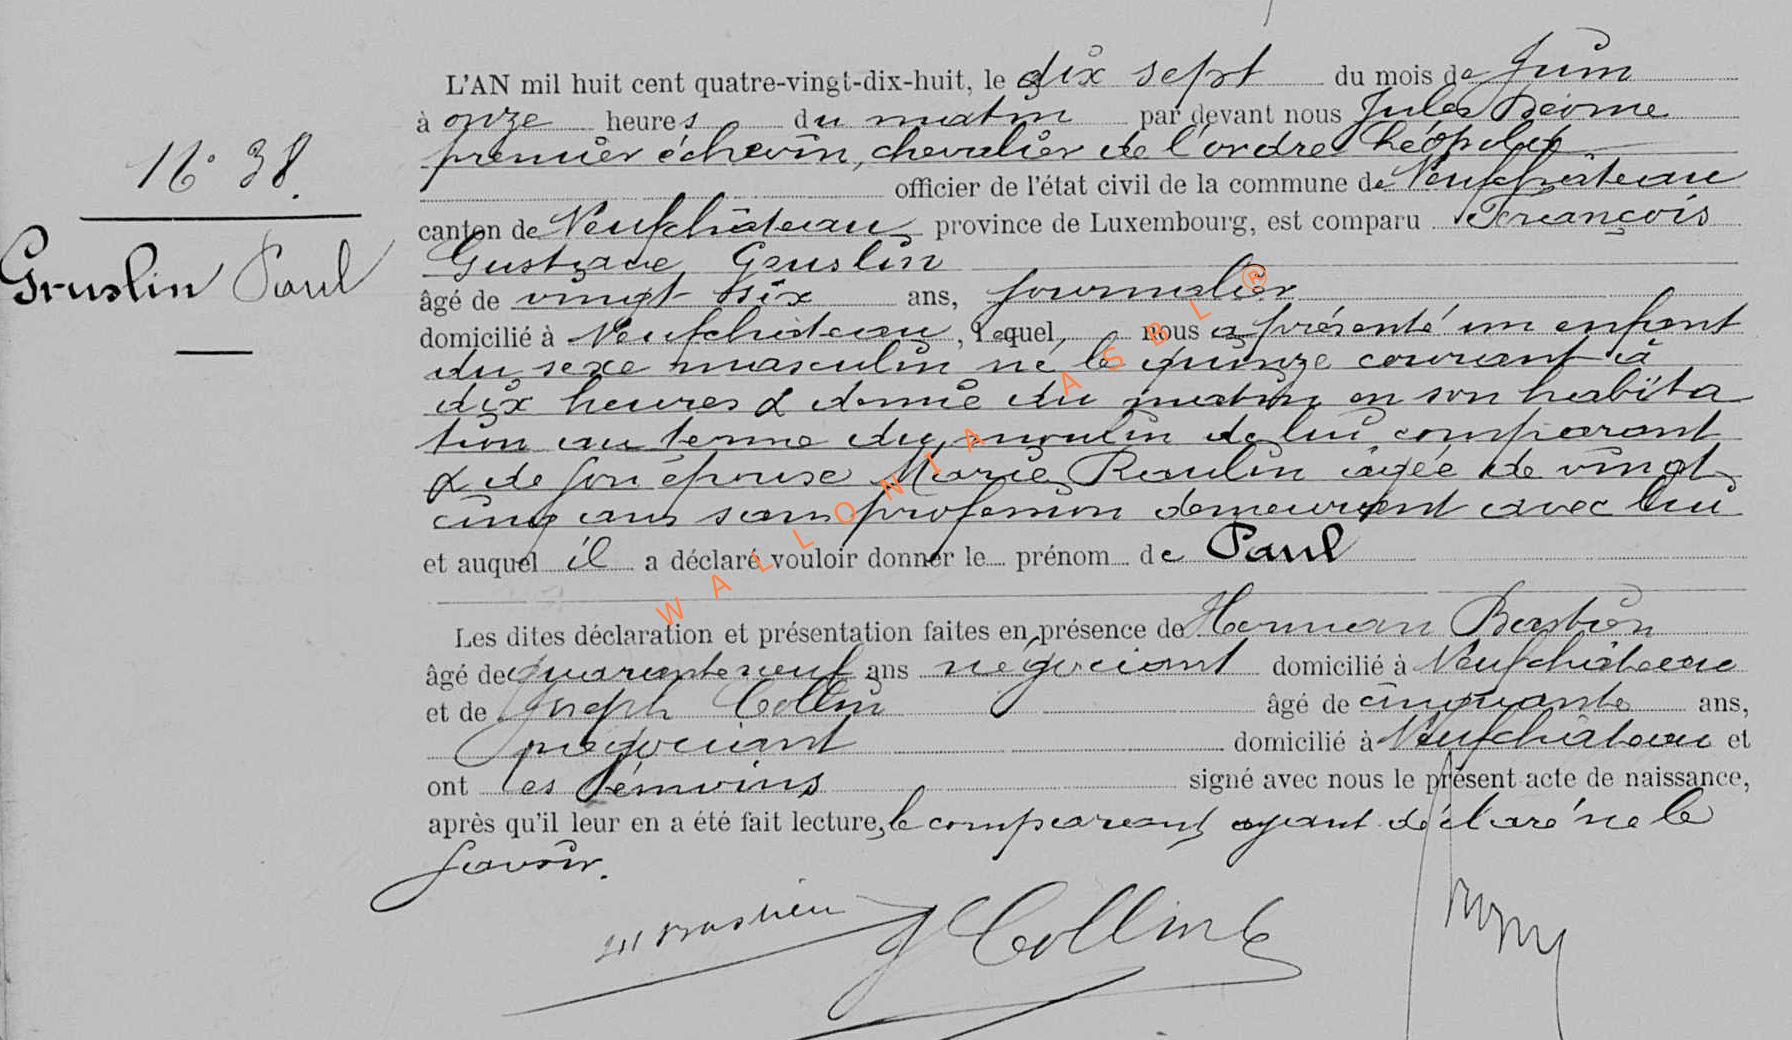 L'AN mil huit cent quatre-vingt-dix-huit, le dix sept du mois de Juin
à onze heures du matin par devant nous Jules
N° 38.
premier échevin, chevalier de l'ordre Léopold
officier de l'état civil de la commune de Neufchâteau
canton de Neufchâteau province de Luxembourg, est comparu François
Gruslin Paul
Gustave Gruslin
âgé de vingt six ans, journalier
domicilié à Neufchateau, lequel, nous a présenté un enfant
du sexe masculin né le quinze courant à
dix heures & demie du matin en son habita
tion au terme du moulin de lui comparant
& de son épouse Marie Raulin âgée de vingt
cinq ans sans profession demeurant avec lui
et auquel il a déclaré vouloir donner le prénom de Paul
WALLONIA ASBL ®
Les dites déclaration et présentation faites en présence de Herman Bastien
âgé de quarante neuf ans négociant domicilié à Neufchâteau
et de Joseph Collin âgé de cinquante ans,
négociant domicilié à Neufchâteau et
ont les témoins signé avec nous le présent acte de naissance,
après qu'il leur en a été fait lecture, le comparant ayant déclaré ne le
savoir.
Bastien J Collin